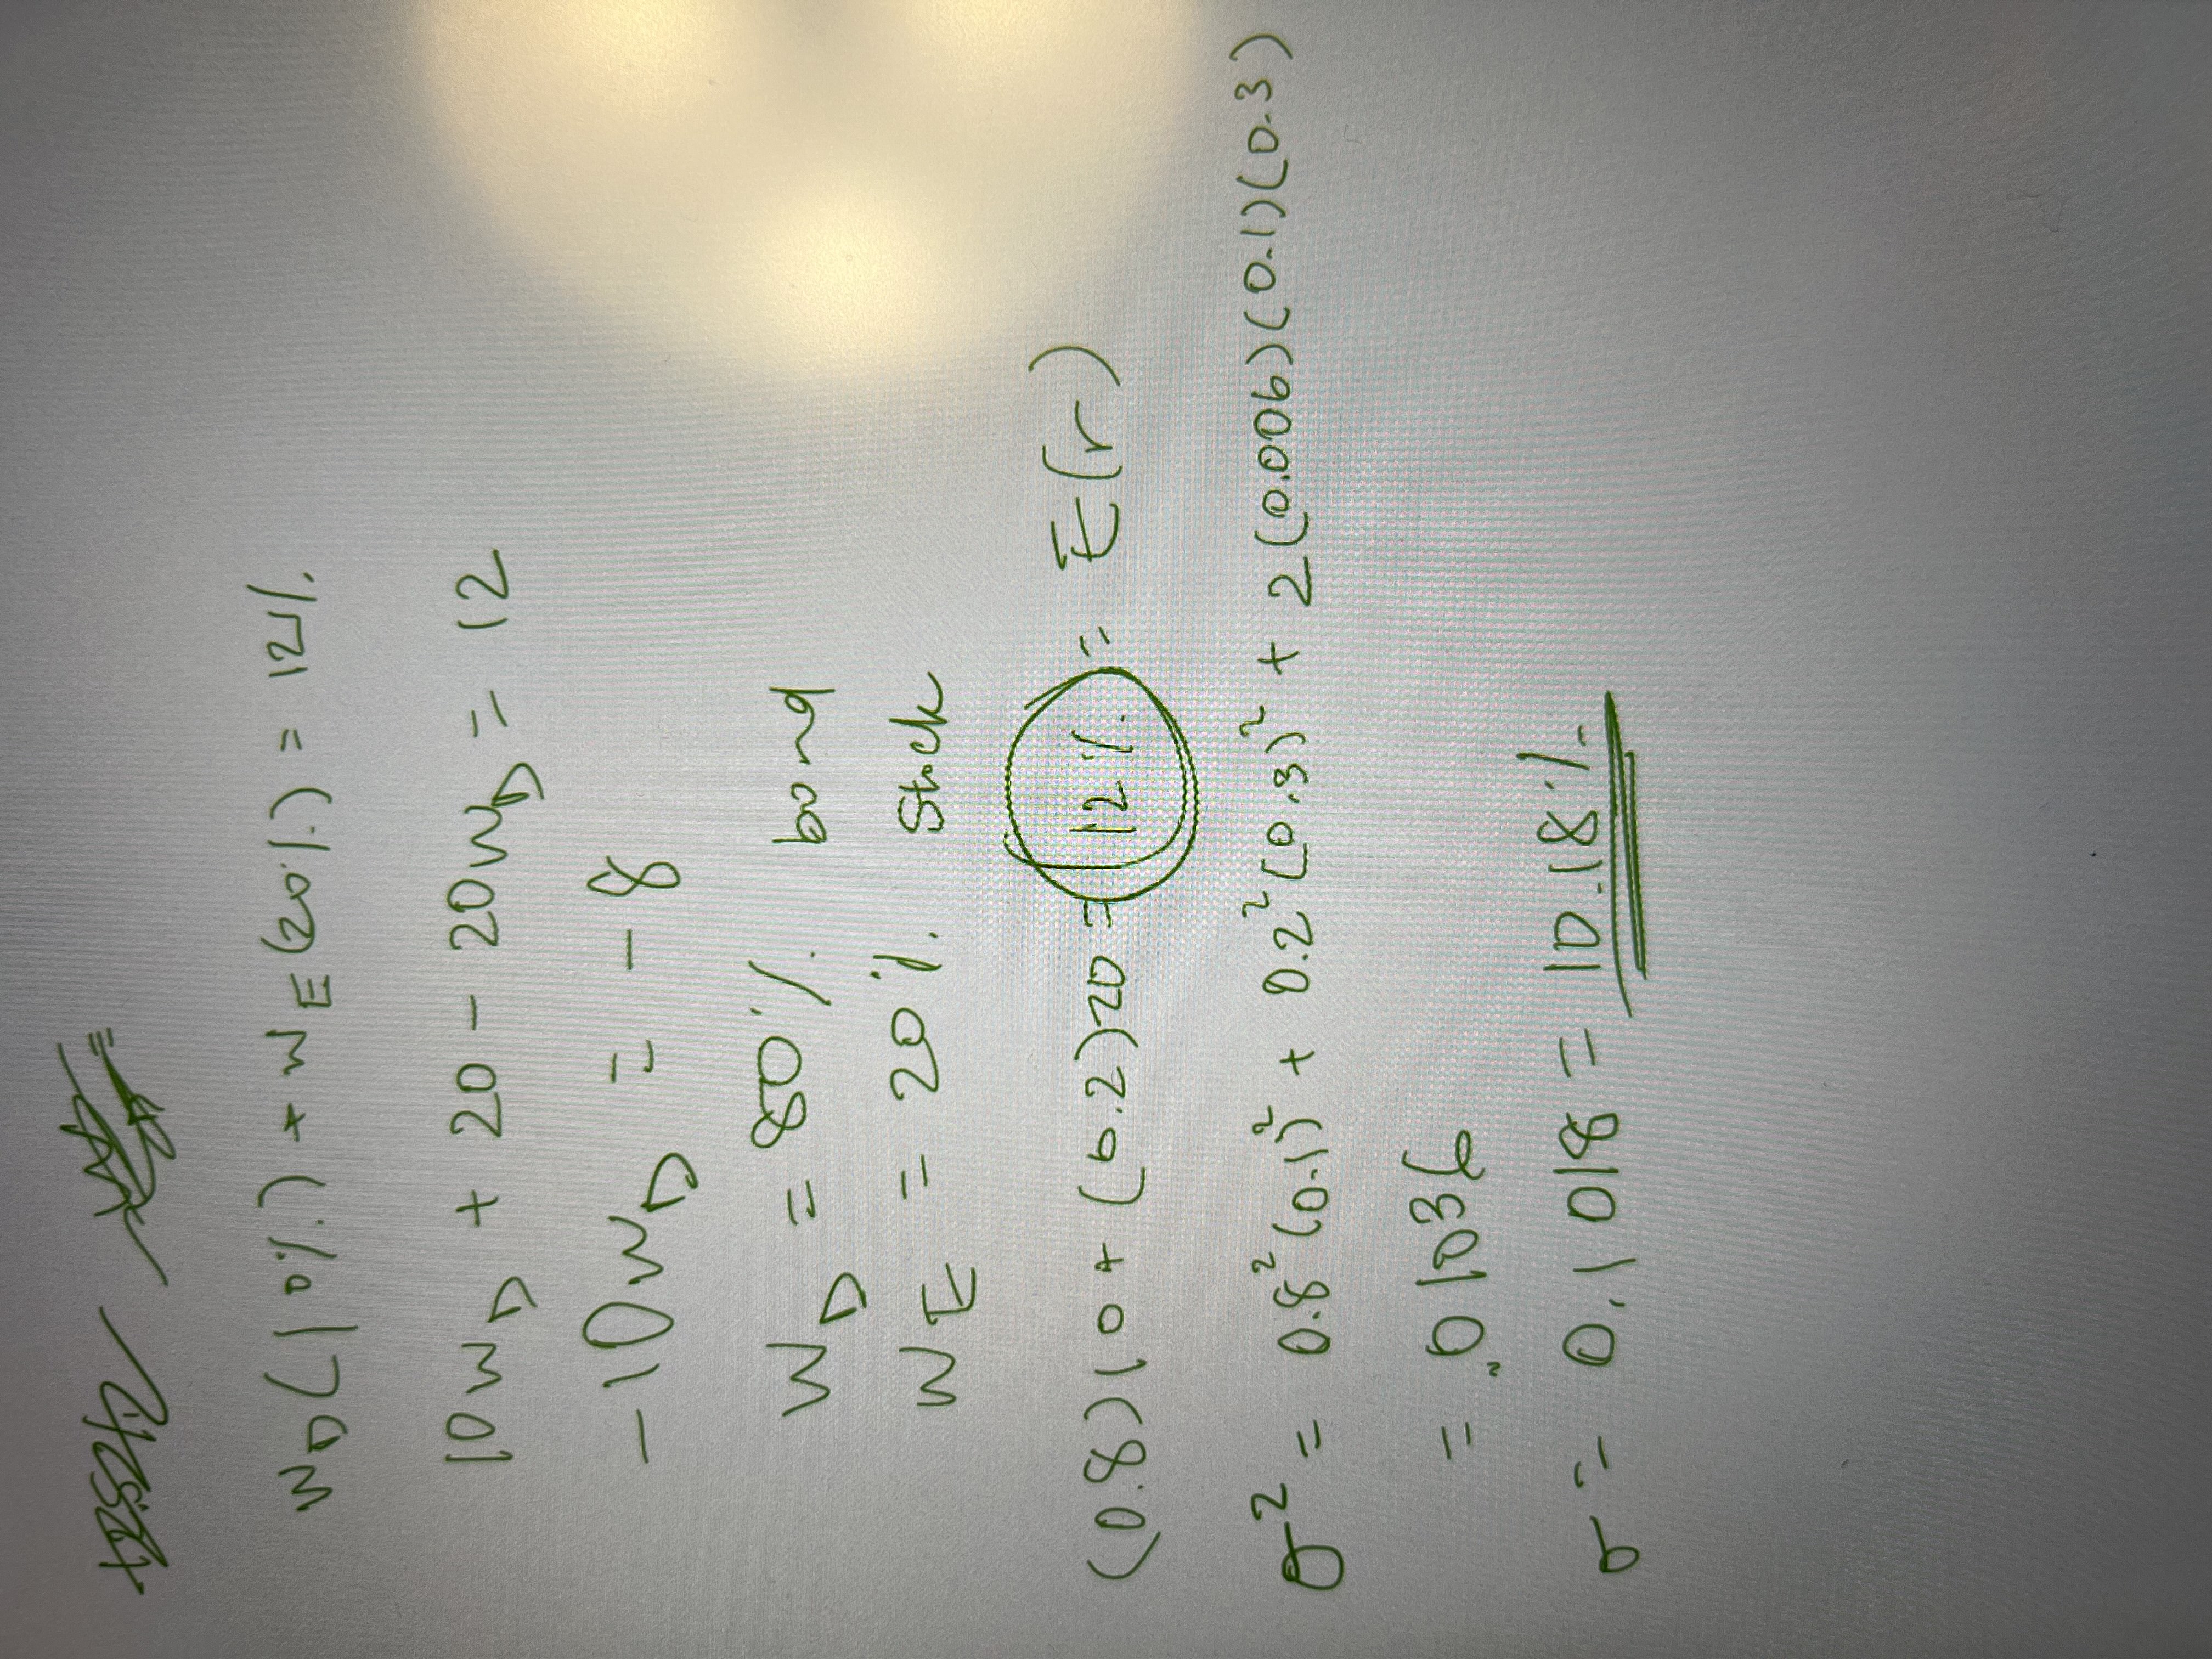 W_D(10%) + W_E(20%) = 12%
10W_D + 20 - 20W_D = 12
-10W_D = -8
W_D = 80% bond
W_E = 20% Stock
(0.8)10 + (0.2)20 = 12% = E(r)
σ² = 0.8²(0.1)² + 0.2²(0.3)² + 2(0.006)(0.1)(0.3)
= .01036
σ = 0.1018 = 10.18%